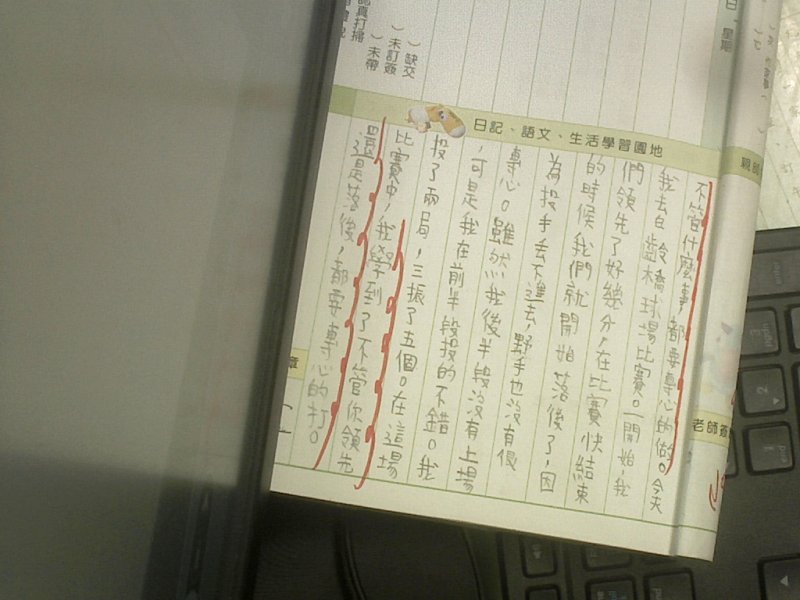 日記、語文、生活學習園地
不管什麼事,都要專心的做。今天
我去白齡橋球場比賽。一開始,我
們領先了好幾分,在比賽快結束
的時候我們就開始落後了,因
為投手丟不進去,野手也沒有很
專心。雖然我後半段沒有上場
,可是我在前半段投的不錯。我
投了兩局,三振了五個。在這場
比賽中,我學到了不管你領先
還是落後,都要專心的打。
老師簽
星期
)缺交
)未訂簽
)未帶
認真打掃
章